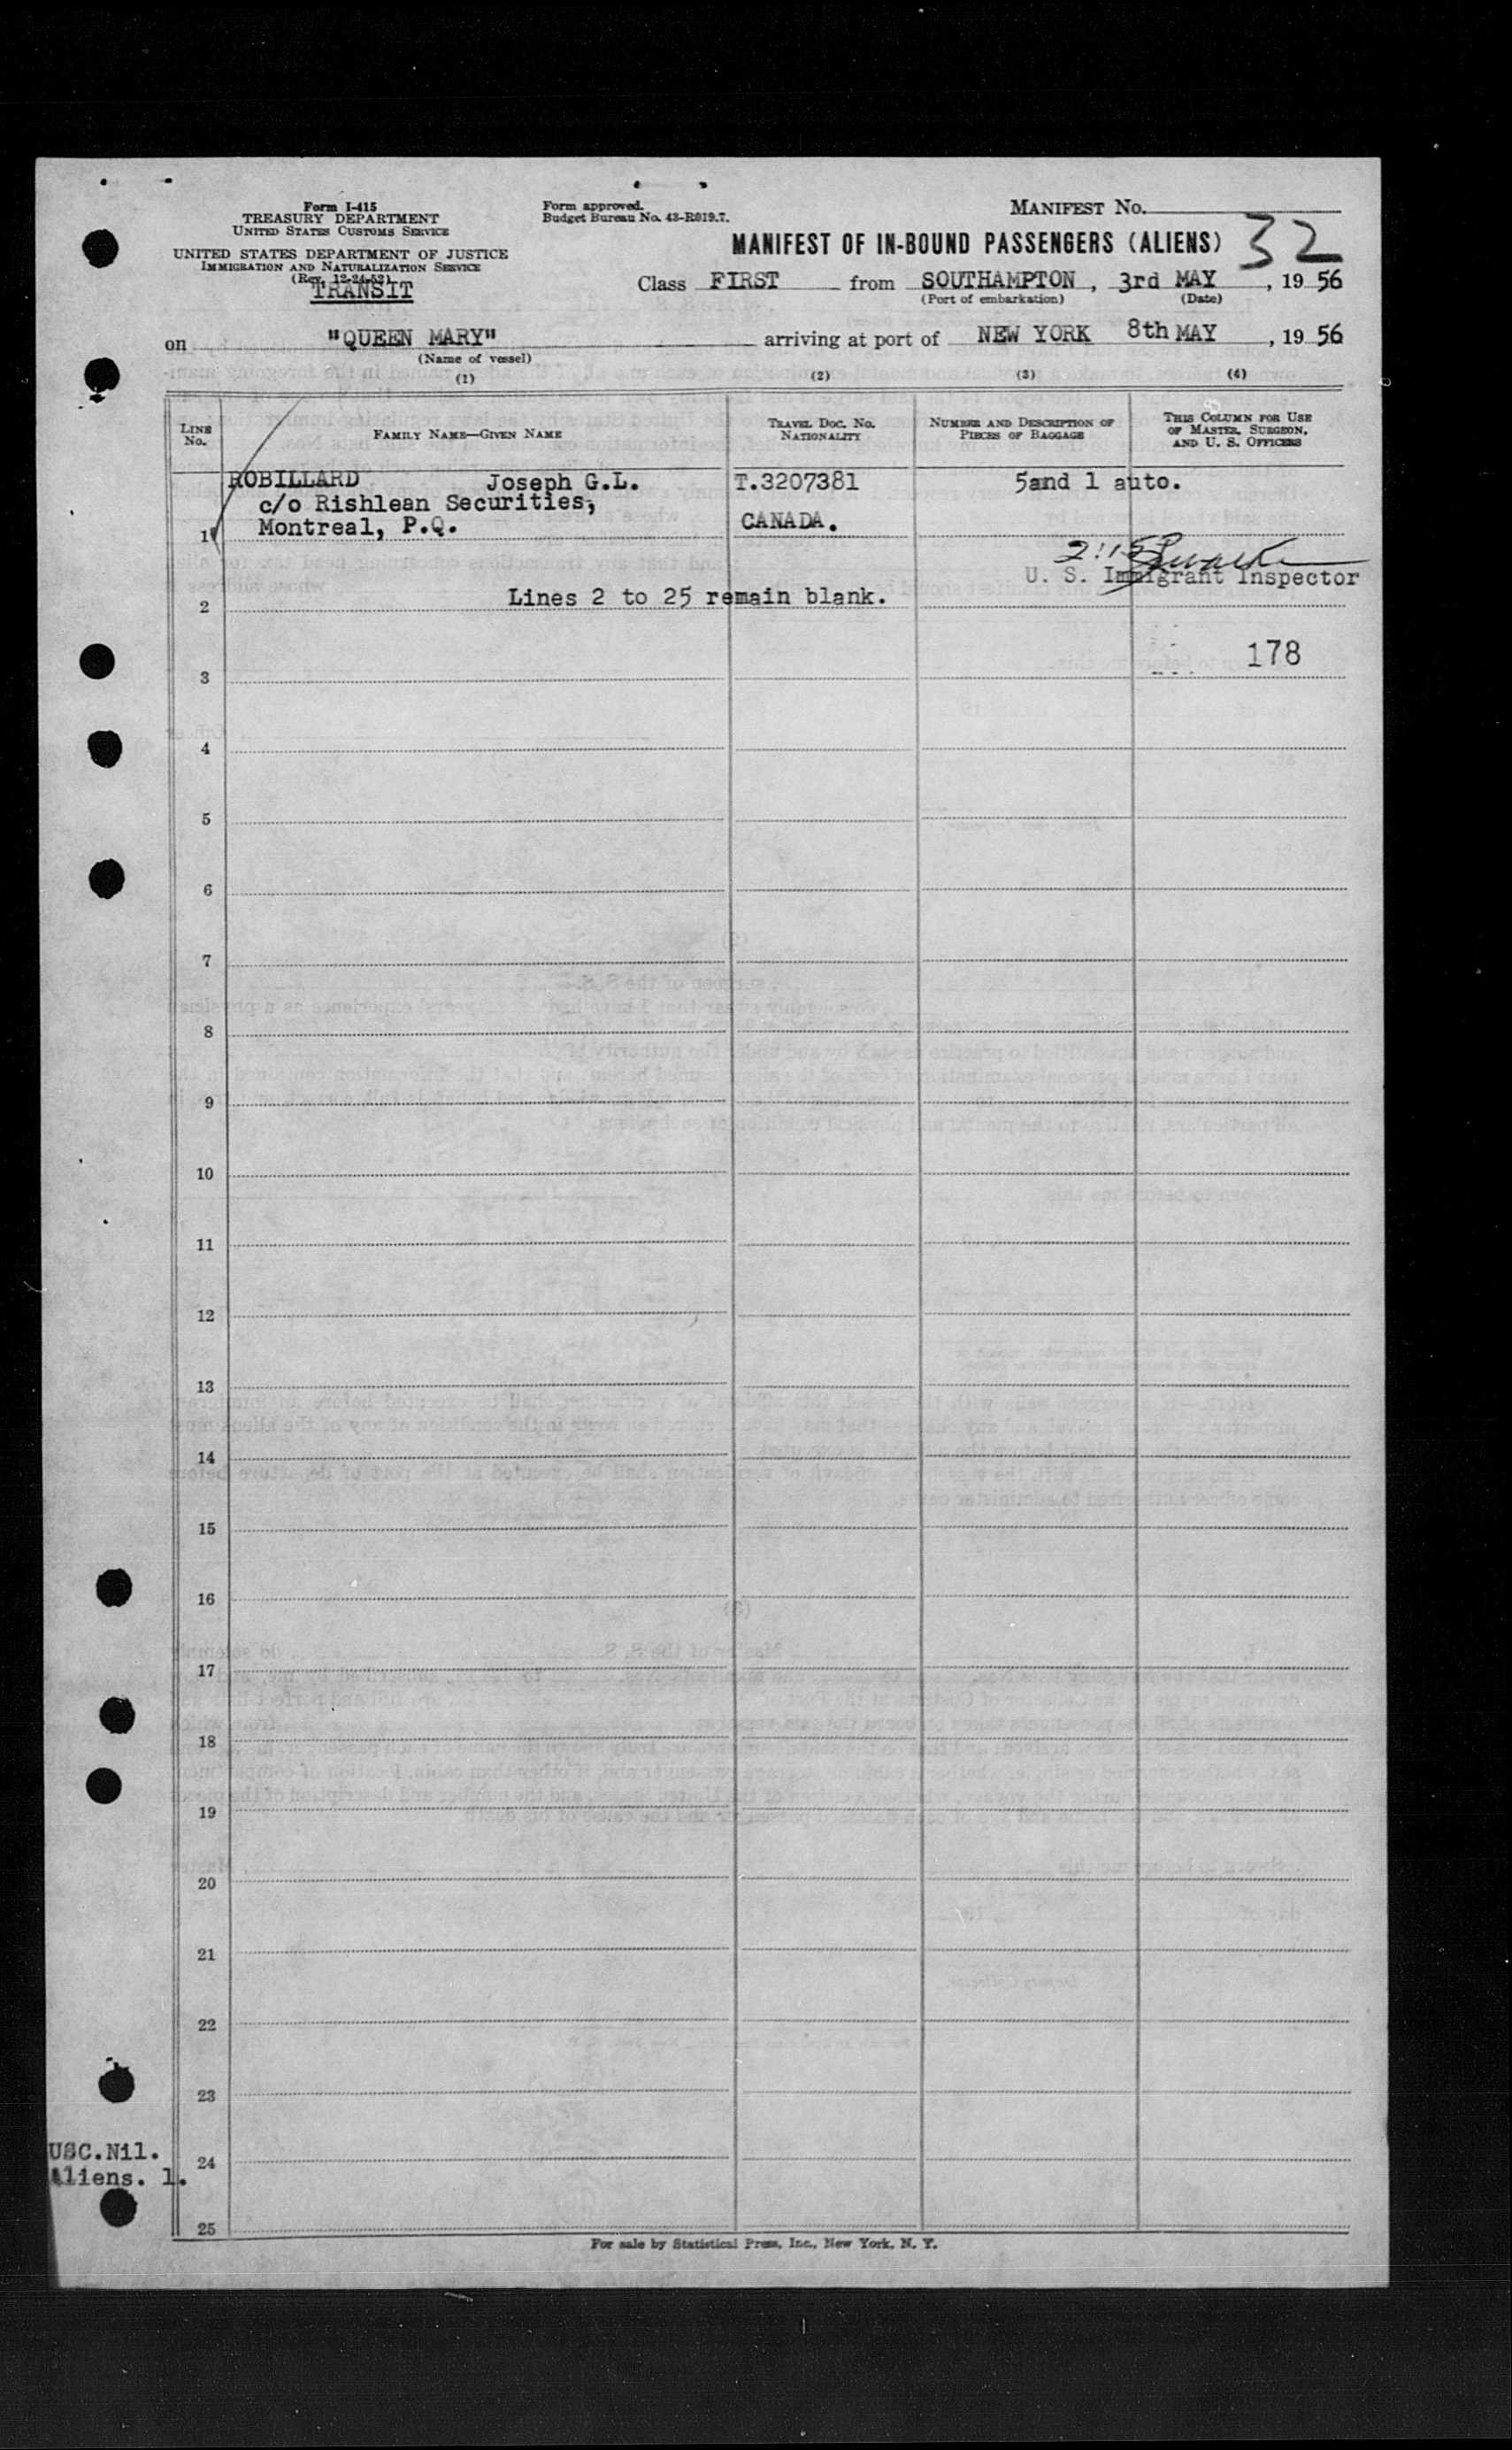 Form I-415
TREASURY DEPARTMENT
UNITED STATES CUSTOMS SERVICE
UNITED STATES DEPARTMENT OF JUSTICE
IMMIGRATION AND NATURALIZATION SERVICE
(Rev. 12-24-52)
TRANSIT
Form approved.
Budget Bureau No. 43-R019.7.
MANIFEST No.
32
MANIFEST OF IN-BOUND PASSENGERS (ALIENS)
Class FIRST from SOUTHAMPTON, 3rd MAY, 19 56
(Port of embarkation) (Date)
on "QUEEN MARY" arriving at port of NEW YORK 8th MAY, 19 56
(Name of vessel)
(1) (2) (3) (4)
LINE No. FAMILY NAME—GIVEN NAME TRAVEL DOC. NO. NATIONALITY NUMBER AND DESCRIPTION OF PIECES OF BAGGAGE THIS COLUMN FOR USE OF MASTER, SURGEON, AND U. S. OFFICERS
ROBILLARD Joseph G.L. T.3207381 5and 1 auto.
c/o Rishlean Securities,
1 Montreal, P.Q. CANADA.
U. S. Immigrant Inspector
2 Lines 2 to 25 remain blank.
178
3
4
5
6
7
8
9
10
11
12
13
14
15
16
17
18
19
20
21
22
23
USC.Nil.
24
Aliens. 1.
25
For sale by Statistical Press, Inc., New York, N. Y.